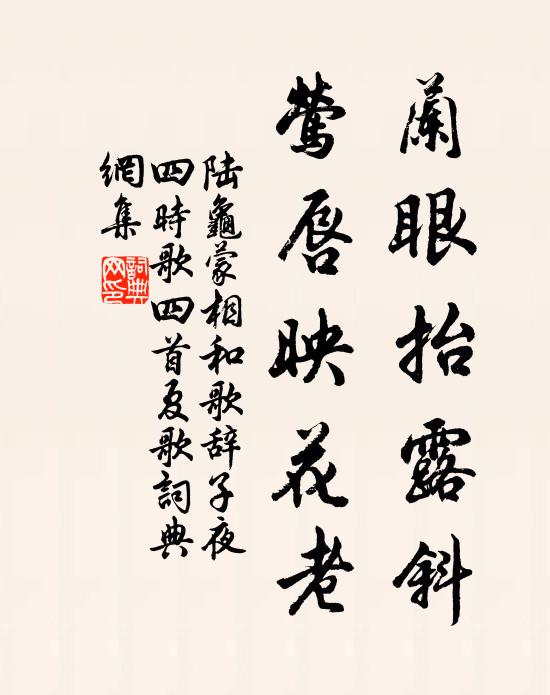 蘭眼抬露斜
鶯唇映花老
陆龜蒙相和歌辞子夜
四時歌四首夏歌詞典
網集
詞典網印